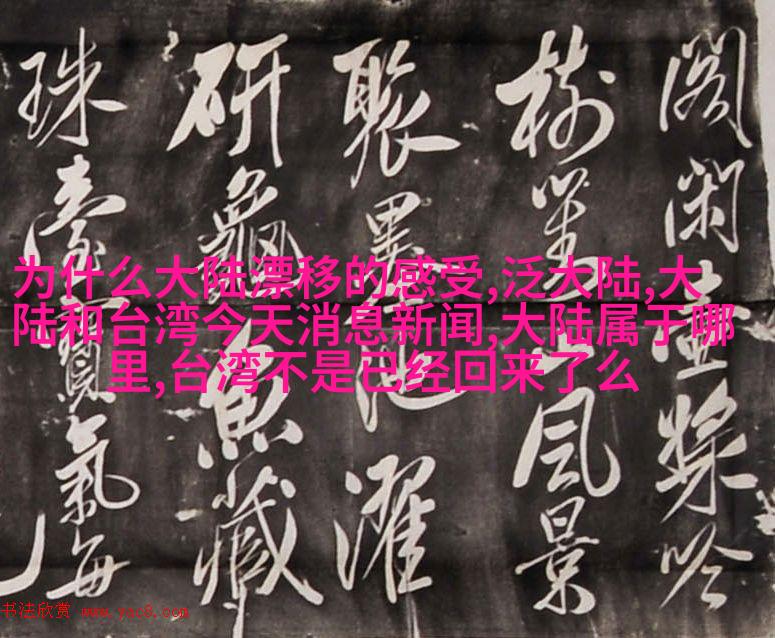 为什么大陆漂移的感受,泛大陆,大
陆和台湾今天消息新闻,大陆属于哪
里,台湾不是已经回来了么
阁闲壶吟
樹風景
墨池濯
研魚藏
珠寶氣每
书法欣赏 www.yac8.com